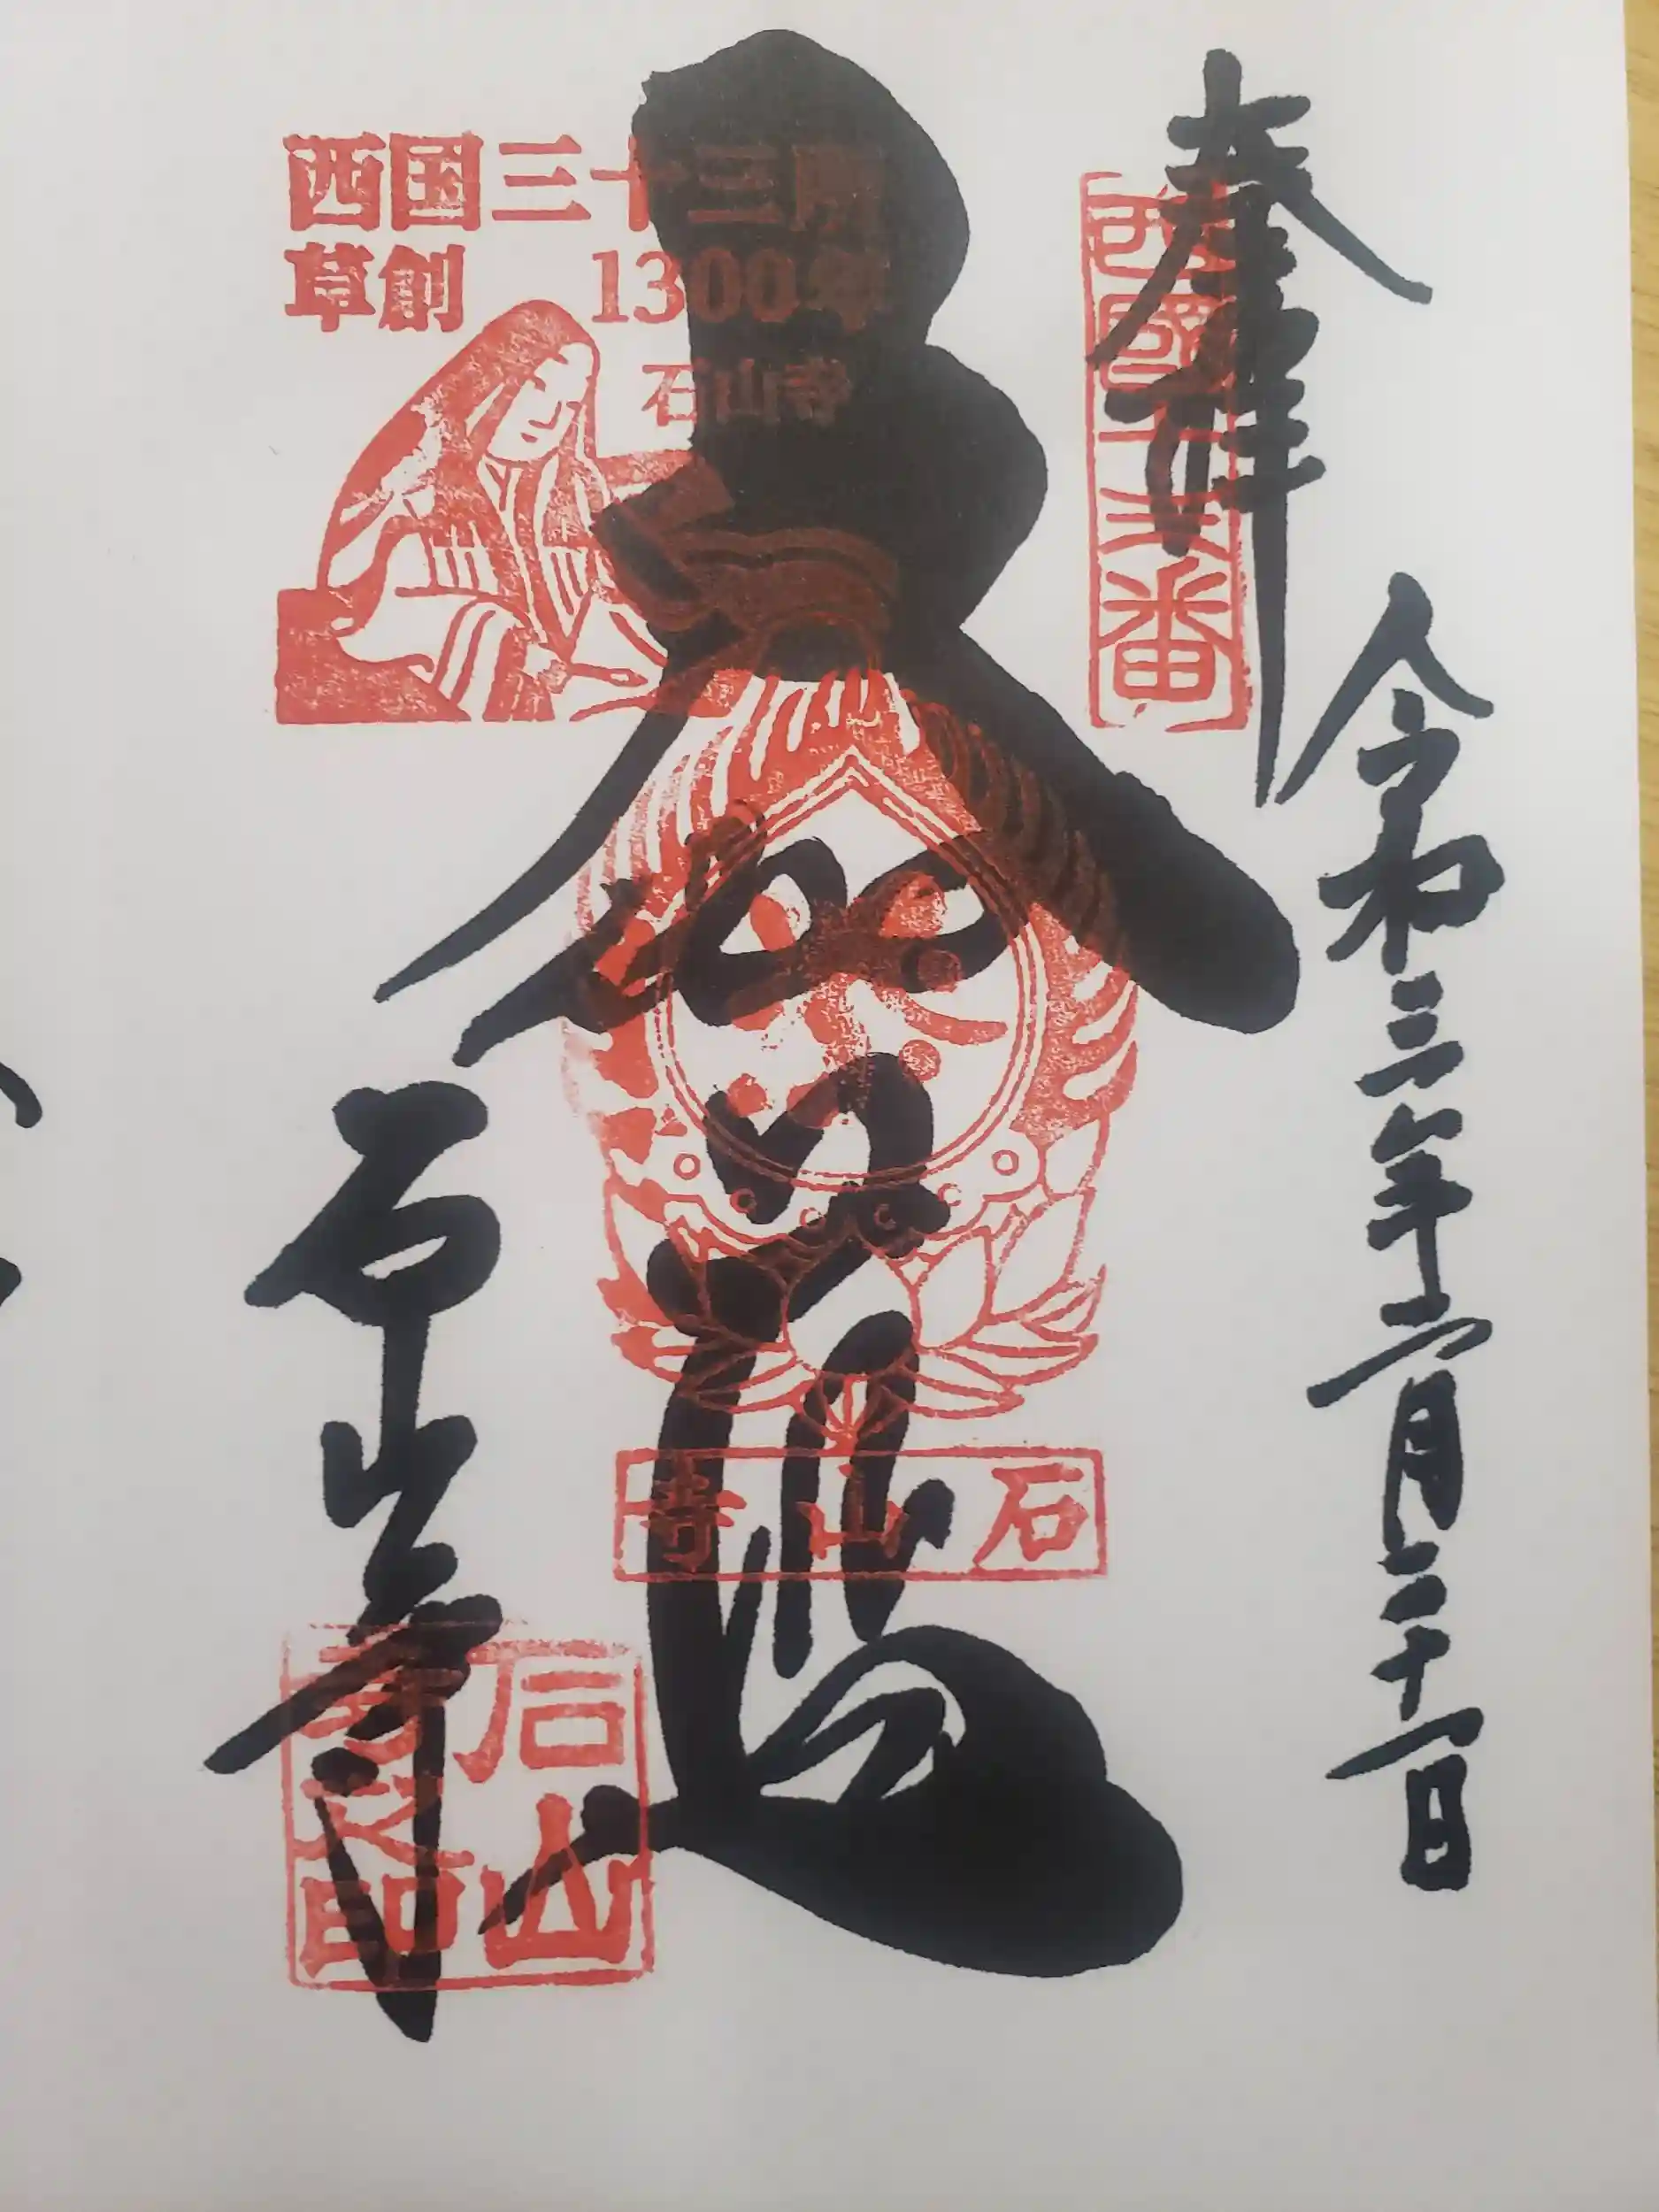 奉拝
西國十三番
令和三年六月二十一日
西国三十三所
草創 1300年
石山寺
大伽藍
石山寺
石山寺
石山寺之印